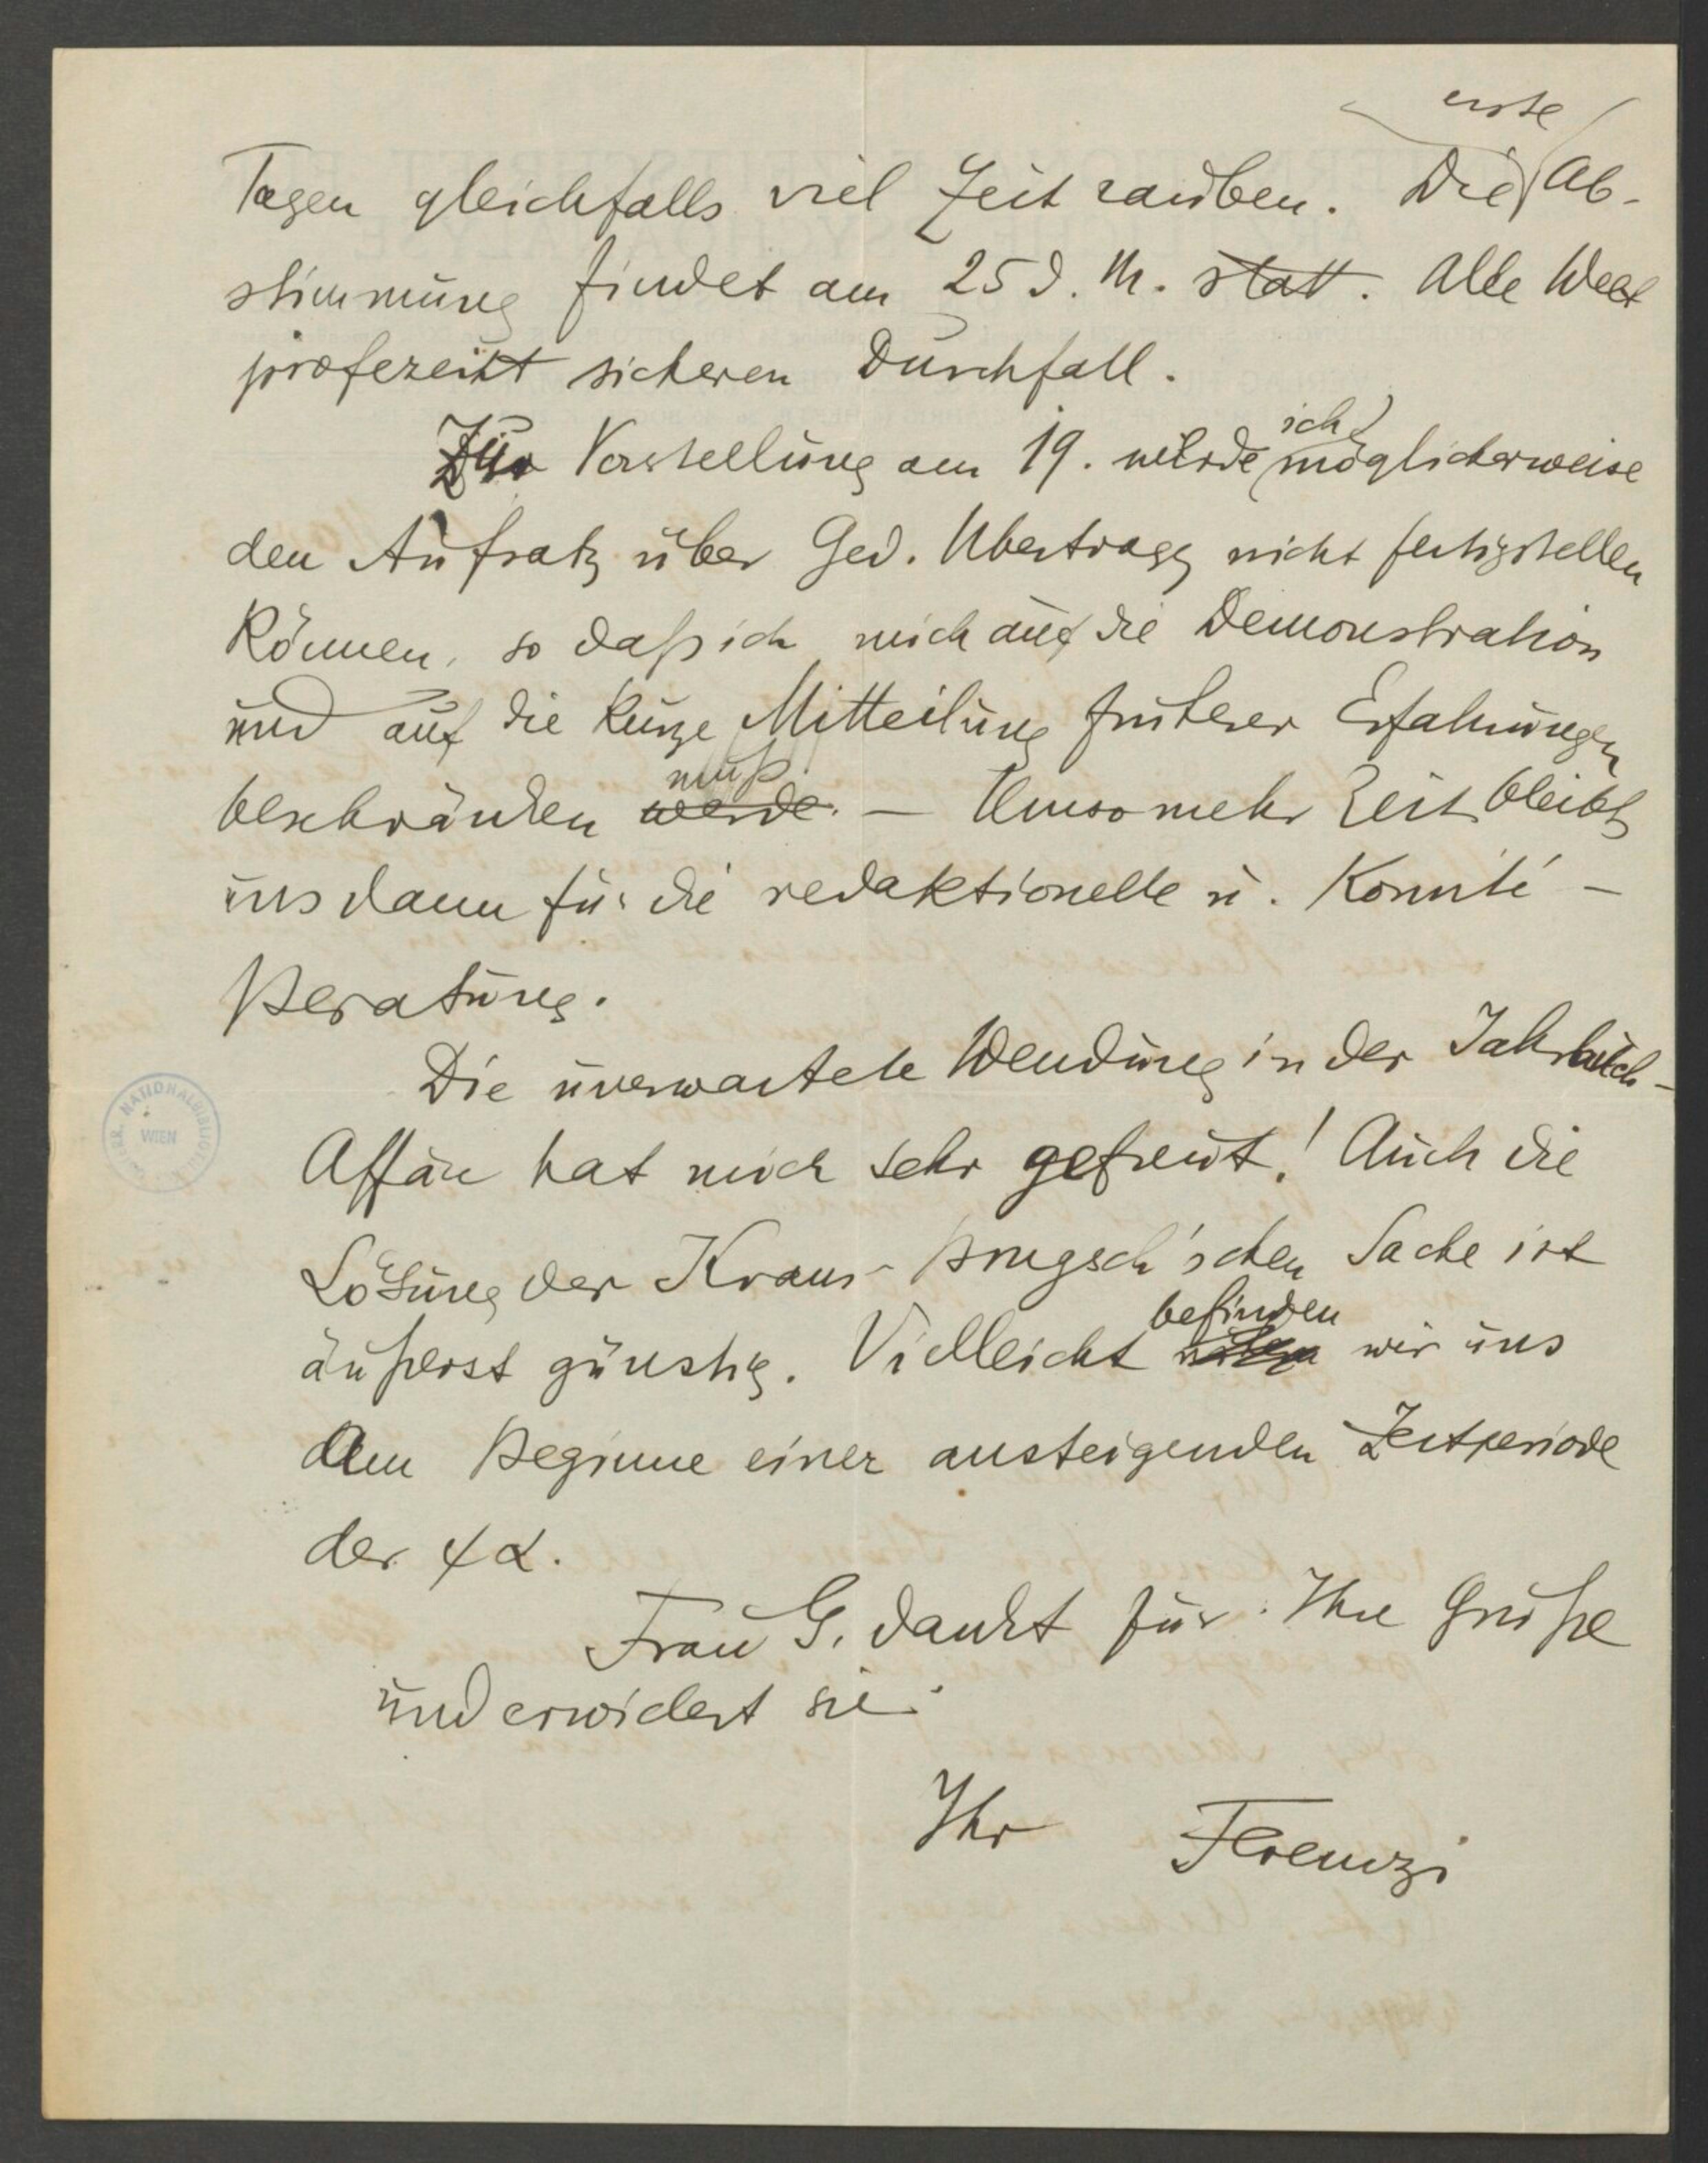 erste
Tagen gleichfalls viel Zeit rauben. Die Ab-
stimmung findet am 25 d. M. statt. Alle Welt
profezeiht sicheren Durchfall.
ich
Zur Vorstellung am 19. würde möglicherweise
den Aufsatz über Ged. Übertragg nicht fertigstellen
können, so daß ich mich auf die Demonstration
und auf die kurze Mitteilung früherer Erfahrungen
muß
beschränken werde. — Umso mehr Zeit bleibt
uns dann für die redaktionelle u. Komité-
Beratung.
Die unerwartete Wendung in der Jahrbuch-
Affäre hat mich sehr gefreut! Auch die
Lösung der Kraus-Brugsch'schen Sache ist
befinden
äußerst günstig. Vielleicht wir uns
am Beginne einer ansteigenden Zeitperiode
der ψα.
Frau G. dankt für Ihre Grüße
und erwidert sie.
Ihr Ferenczi
NATIONALBIBLIOTHEK
WIEN